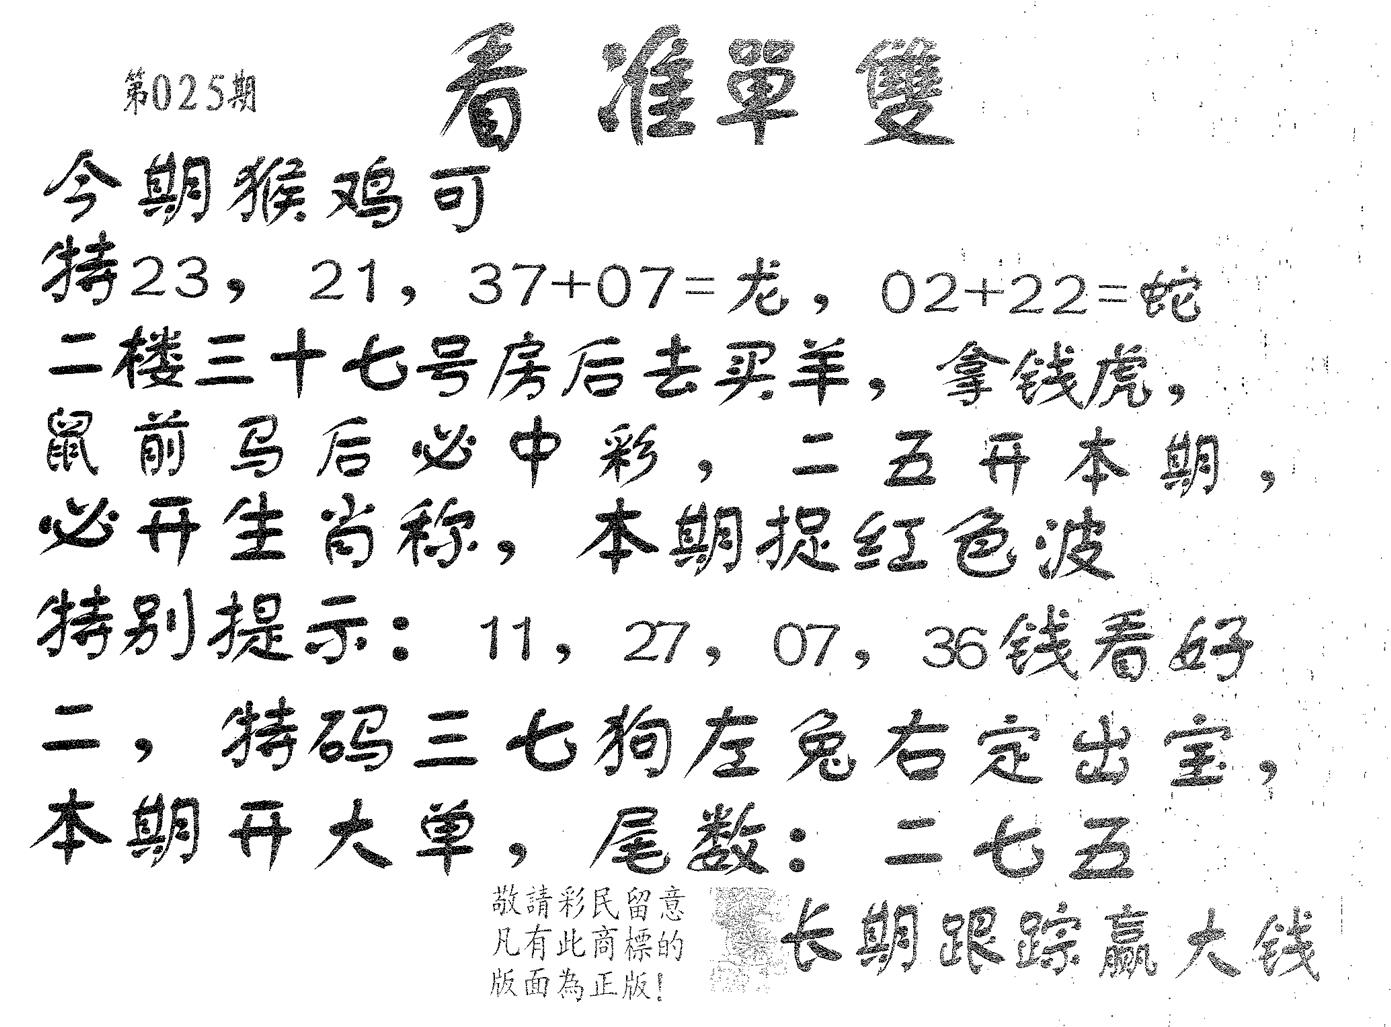 第025期
看准單雙
今期猴鸡可
特23，21，37+07=龙，02+22=蛇
二楼三十七号房后去买羊，拿钱虎，
鼠前马后必中彩，二五开本期，
必开生肖称，本期捉红色波
特别提示：11，27，07，36钱看好
二，特码三七狗左兔右定出宝，
本期开大单，尾数：二七五
敬請彩民留意
凡有此商標的
版面為正版！
长期跟踪赢大钱